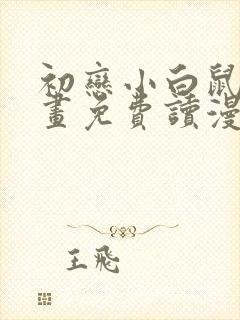 初戀小白鼠
畫免費讀漫
王飛